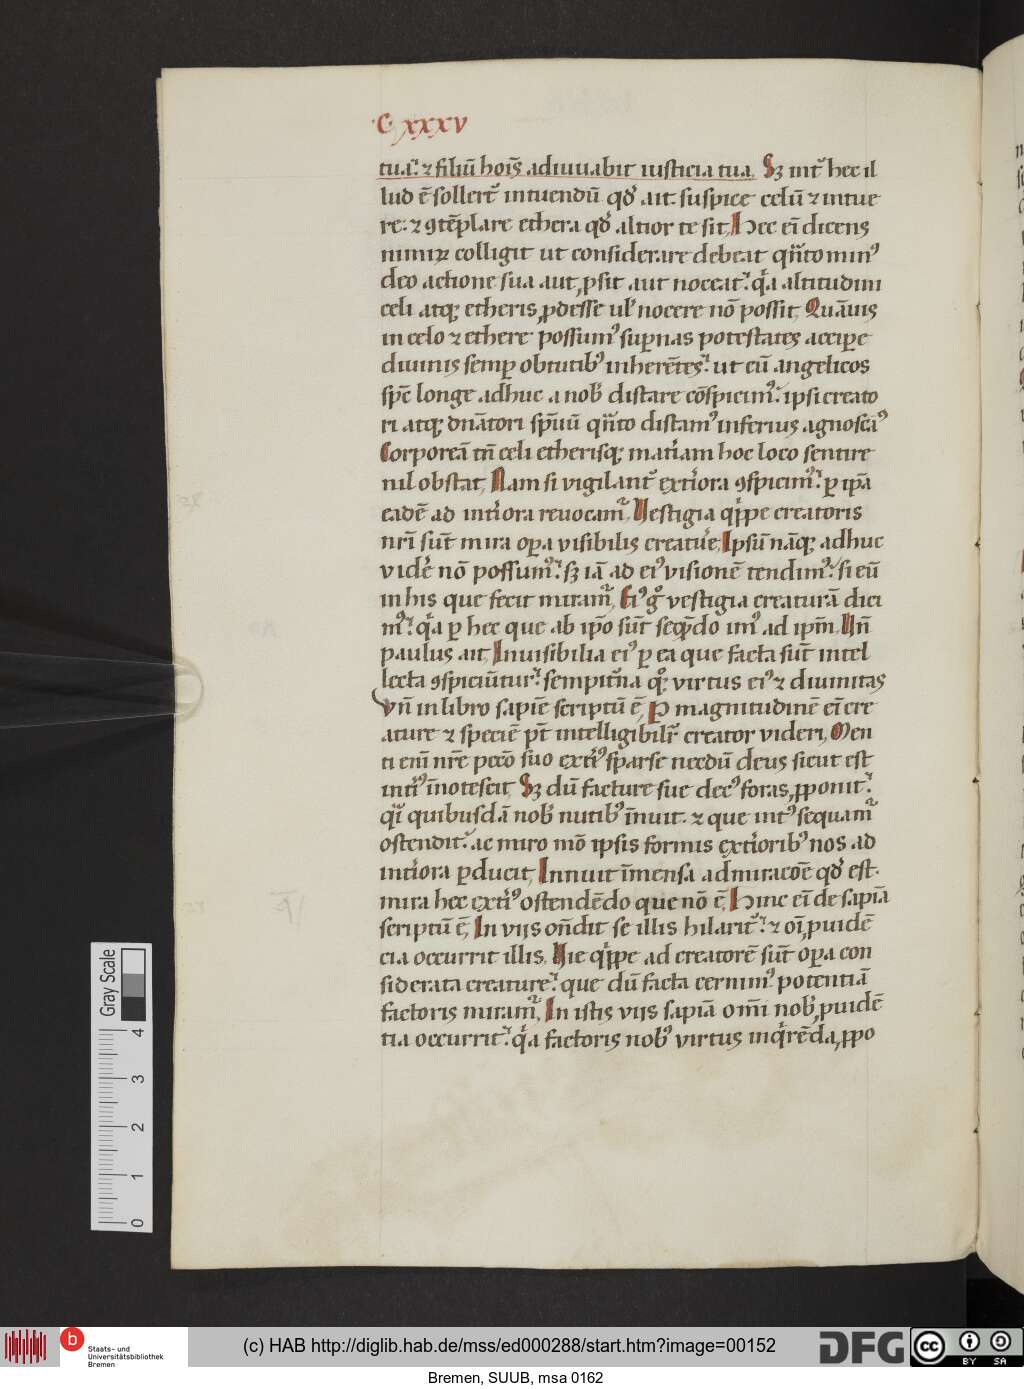 C. xxxv
tua.᷑ ⁊ filiū hoīs adiuuabit iusticia tua. Sꝫ int᷑ hec il
lud ē sollert᷑ intuendū qđ ait. suspice celū ⁊ intue
re: ⁊ ꝯtēplare ethera qđ altior te sit. Hec ei̅ dicens
nimiꝝ colligit ut considerare debeat qn̄to minꝰ
deo actione sua aut ꝓsit aut noceat.᷑ qͥa altitudini
celi atqꝫ etheris ꝓdesse ul̕ nocere nō possit. Quāuis
in celo ⁊ ethere possumꝰ sup̄nas potestates accip̄e
diuinis semꝑ obtutibꝰ inherētes.᷑ ut cū angelicos
sp̄c longe adhuc a nob̕ distare cōspicimꝰ.᷑ ipsi creato
ri atqꝫ dn̄atori sp̄uū qn̄to distamꝰ inferius agnoscāꝰ
Corporeā tn̄ celi etherisqꝫ mat̕iam hoc loco sentire
nil obstat. Nam si vigilant᷑ ext̕iora ꝯspicimꝰ.᷑ ꝑ ip̄a
eadē ad int̕iora reuocam᷑. Vestigia qͥppe creatoris
nr̄i sūt mira oꝑa visibilis creatu̕e. Ipsū nāqꝫ adhuc
vide̕ nō possumꝰ.᷑ sꝫ iā ad eiꝰ visionē tendimꝰ.᷑ si eū
in his que fecit miram᷑. Eiꝰ gͦ vestigia creaturā dici
mꝰ.᷑ qͥa ꝑ hec que ab ip̄o sūt seqͤdo imꝰ ad ip̄m. Vn̄
paulus ait. Inuisibilia eiꝰ ꝑ ea que facta sūt intel
lecta ꝯspiciūtur.᷑ sempit̕na qͦꝫ virtus eiꝰ ⁊ diuinitas
Vn̄ in libro sapiē scriptū ē. P magnitudinē ei̅ cre
ature ⁊ speciē p̄t intelligibilr̕ creator videri. Men
ti eni̅ nr̄e pecc̄o suo ext̕iꝰ sparse necdū deus sicut est
int̕iꝰ īnotescit. Sꝫ dū facture sue decꝰ foras ꝓponit.᷑
qͣi quibusdā nob̕ nutibꝰ īnuit. ⁊ que intꝰ sequam᷑
ostendit.᷑ ac miro mō ipsis formis ext̕ioribꝰ nos ad
int̕iora ꝑducit. Innuit īmensa admirac̄oē qđ est.
mira hec ext̕iꝰ ostendēdo que nō ē. Hinc ei̅ de sapīa
scriptū ē. In viis on̄dit se illis hilarit᷑.᷑ ⁊ oī ꝓuidē
cia occurrit illis. Vie qͥppe ad creatorē sūt oꝑa con
siderata creature.᷑ que dū facta cernimꝰ potentiā
factoris miram᷑. In istis viis sapīa om̄i nob̕ ꝓuidē
tia occurrit.᷑ qͥa factoris nobꝰ virtus inqͥrēda ꝓpo
Gray Scale
4
3
2
1
0
b
Staats- und
Universitätsbibliothek
Bremen
(c) HAB http://diglib.hab.de/mss/ed000288/start.htm?image=00152
DFG
cc
BY SA
Bremen, SUUB, msa 0162